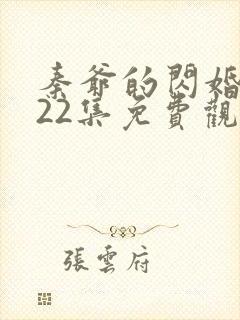 秦爺的閃婚
22集免費觀
張雲府